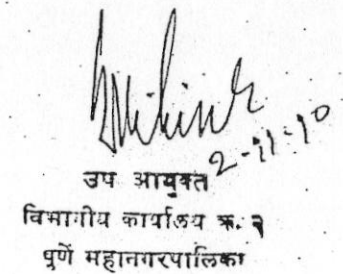 2-11-10
उप आयुक्त
विभागीय कार्यालय क्र. २
पुणें महानगरपालिका